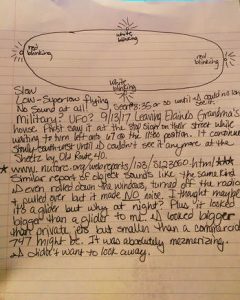 white
blinking
red
blinking
red
blinking
White
blinking
Slow
Low-Superlow flying
No Sound at all. 8:35 or so until I could no longer
Military? UFO? 9/13/17 Leaving Elaine's Grandma's see it.
house. First saw it at the stop sign on their street while
waiting to turn left onto 67 at the 11:56 position. It continued
South-southwest until I couldn't see it any more at the
Sheetz by Old Route 40.
www.nuforc.org/webreports/128/S128050.html
Similar report of object sounds like the same kind
I even rolled down the windows, turned off the radio
& pulled over but it made NO noise. I thought maybe
it's a glider but why at night? Plus it looked
bigger than a glider to me. I looked bigger
than private jets but smaller than a commercial
747 might be. It was absolutely mesmerizing.
I didn't want to look away.